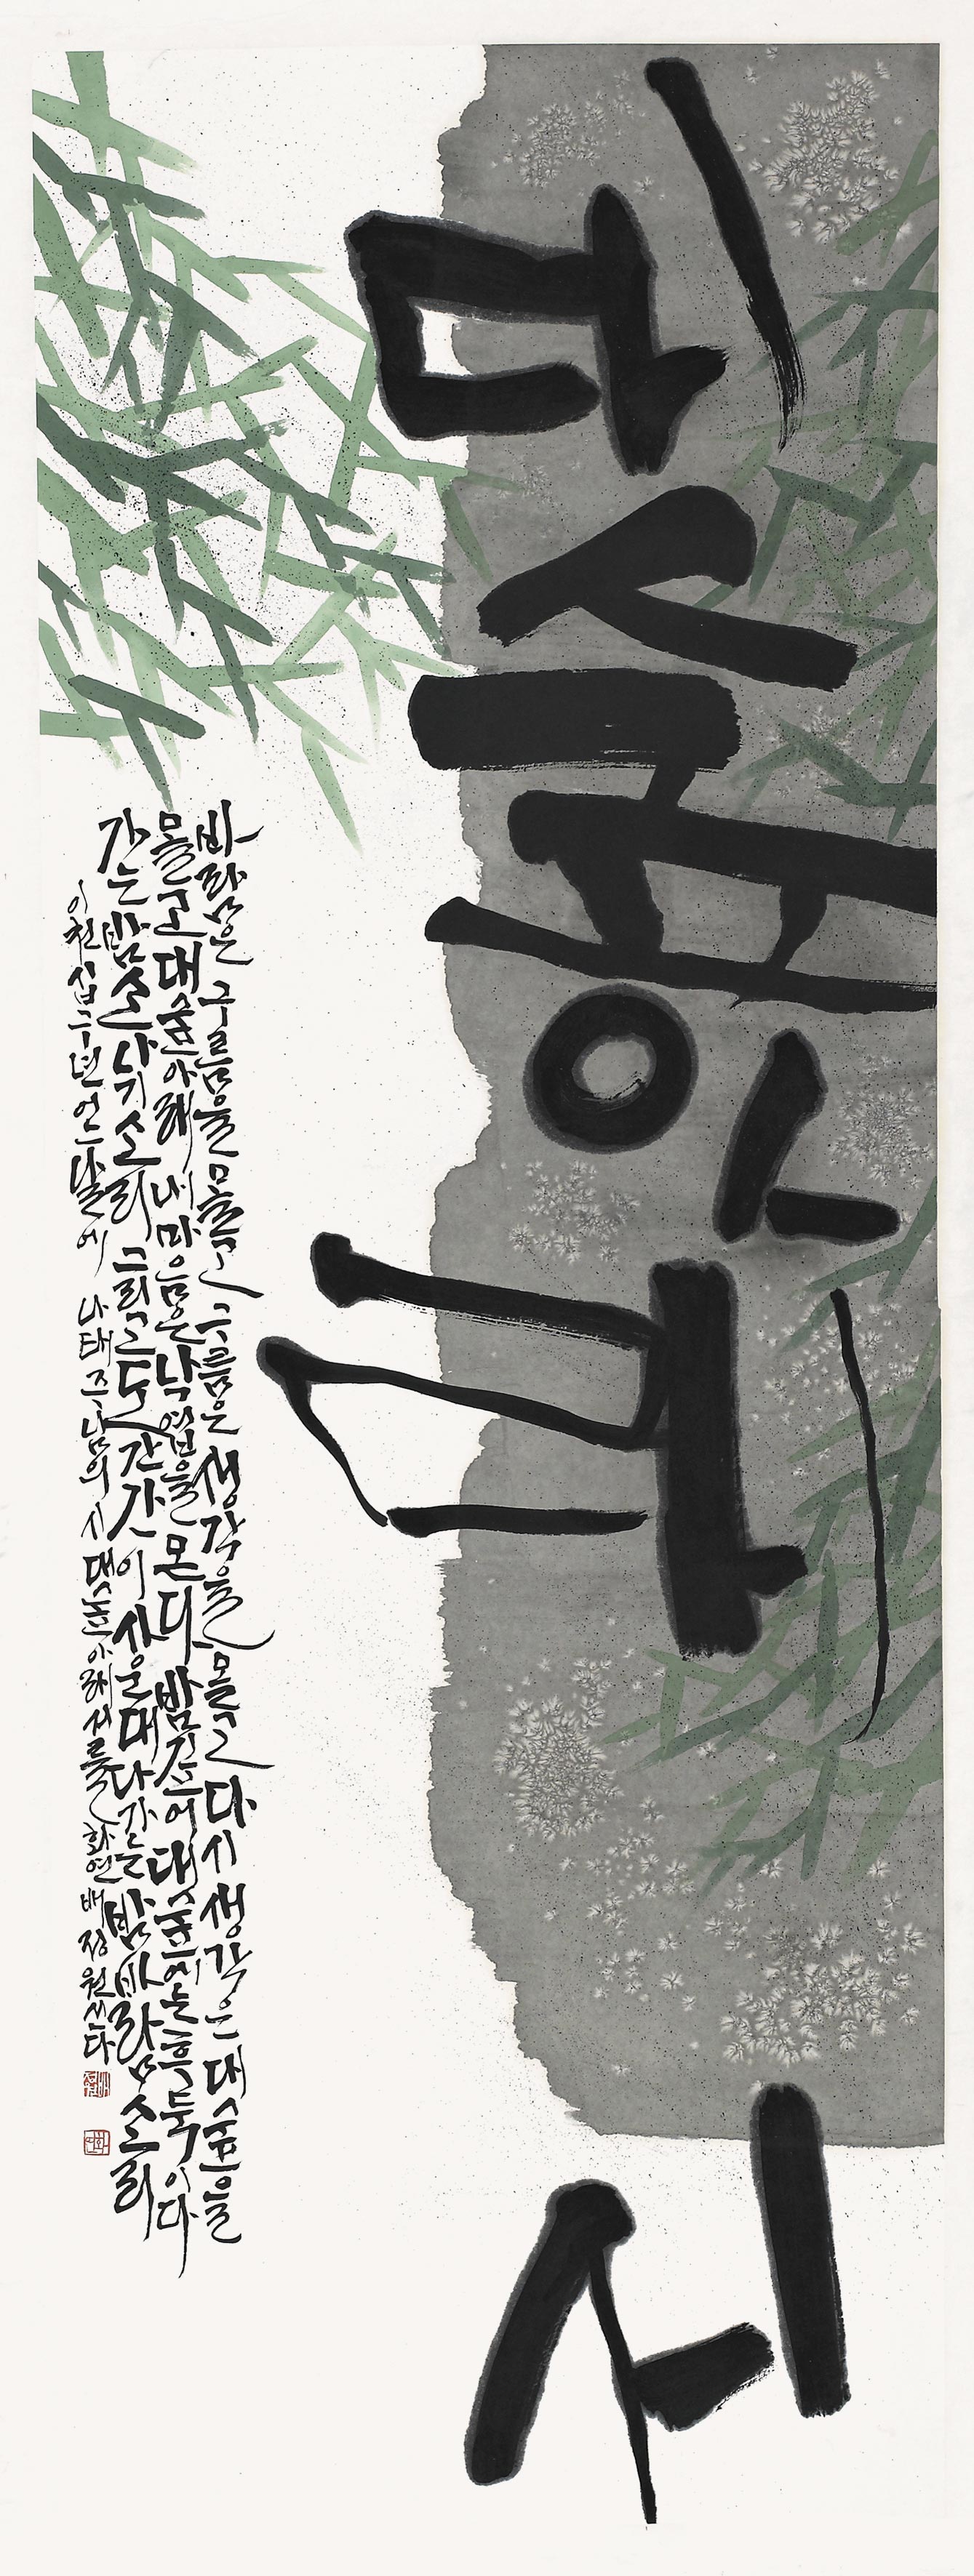 대숲아래서
바람은 구름을 몰고 구름은 생각을 몰고 다시 생각은 대숲을
몰고 대숲 아래 내 마음은 낙엽을 몬다 밤 깊어 대숲에는 후둑이다
가는 밤 소나기 소리 그리고도 간간이 사운대다 가는 밤바람 소리
이천십구년 언달에 나태주님의 시 대숲 아래서를 화연 배정원 쓰다